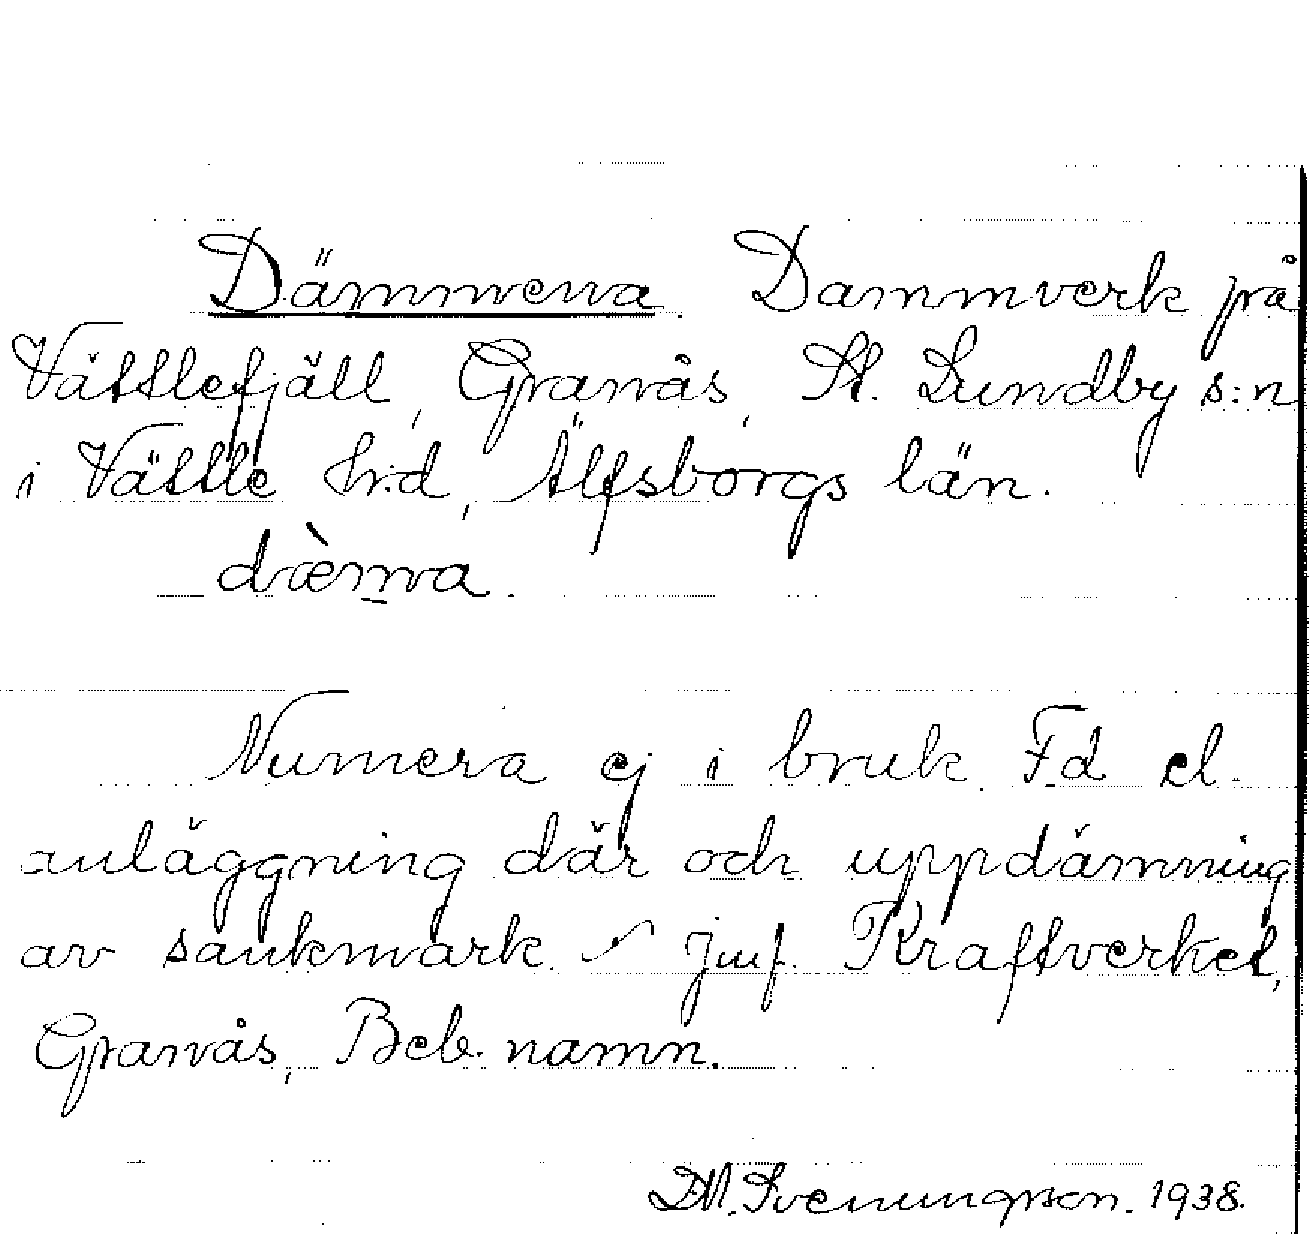 Dämmena. Dammverk på
Vättlefjäll, Granås, St. Lundby s:n
i Vättle h:d, Älfsborgs län.
dæ̀m̲a.
Numera ej i bruk. F.d el-
anläggning där och uppdämning
av sankmark. Jmf. Kraftverket,
Granås, Beb. namn.
D.M. Svenungson. 1938.